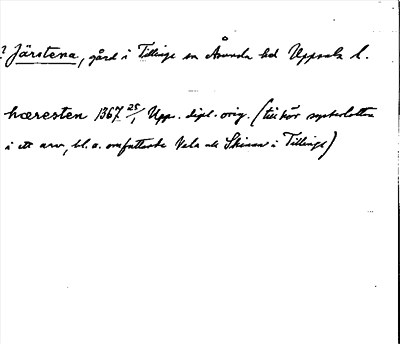 ? Järstena, gård i Tillinge sn Åsunda hd Uppsala l.
hæresten 1367 25/1 Upp. dipl. orig. (tillhör systerlotten
i ett arv, bl. a. omfattande Vela och Skinna i Tillinge)